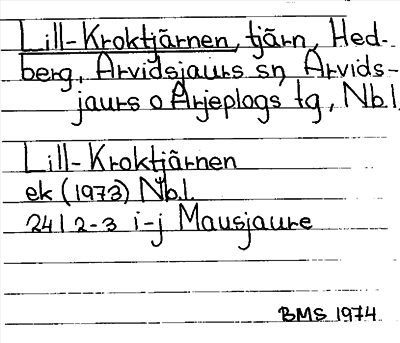 Lill-Kroktjärnen, tjärn, Hed-
berg, Arvidsjaurs sn, Arvids-
jaurs o Arjeplogs tg, Nb.l.
Lill-Kroktjärnen
ek (1973) Nb.l.
24I 2-3 i-j Mausjaure
BMS 1974